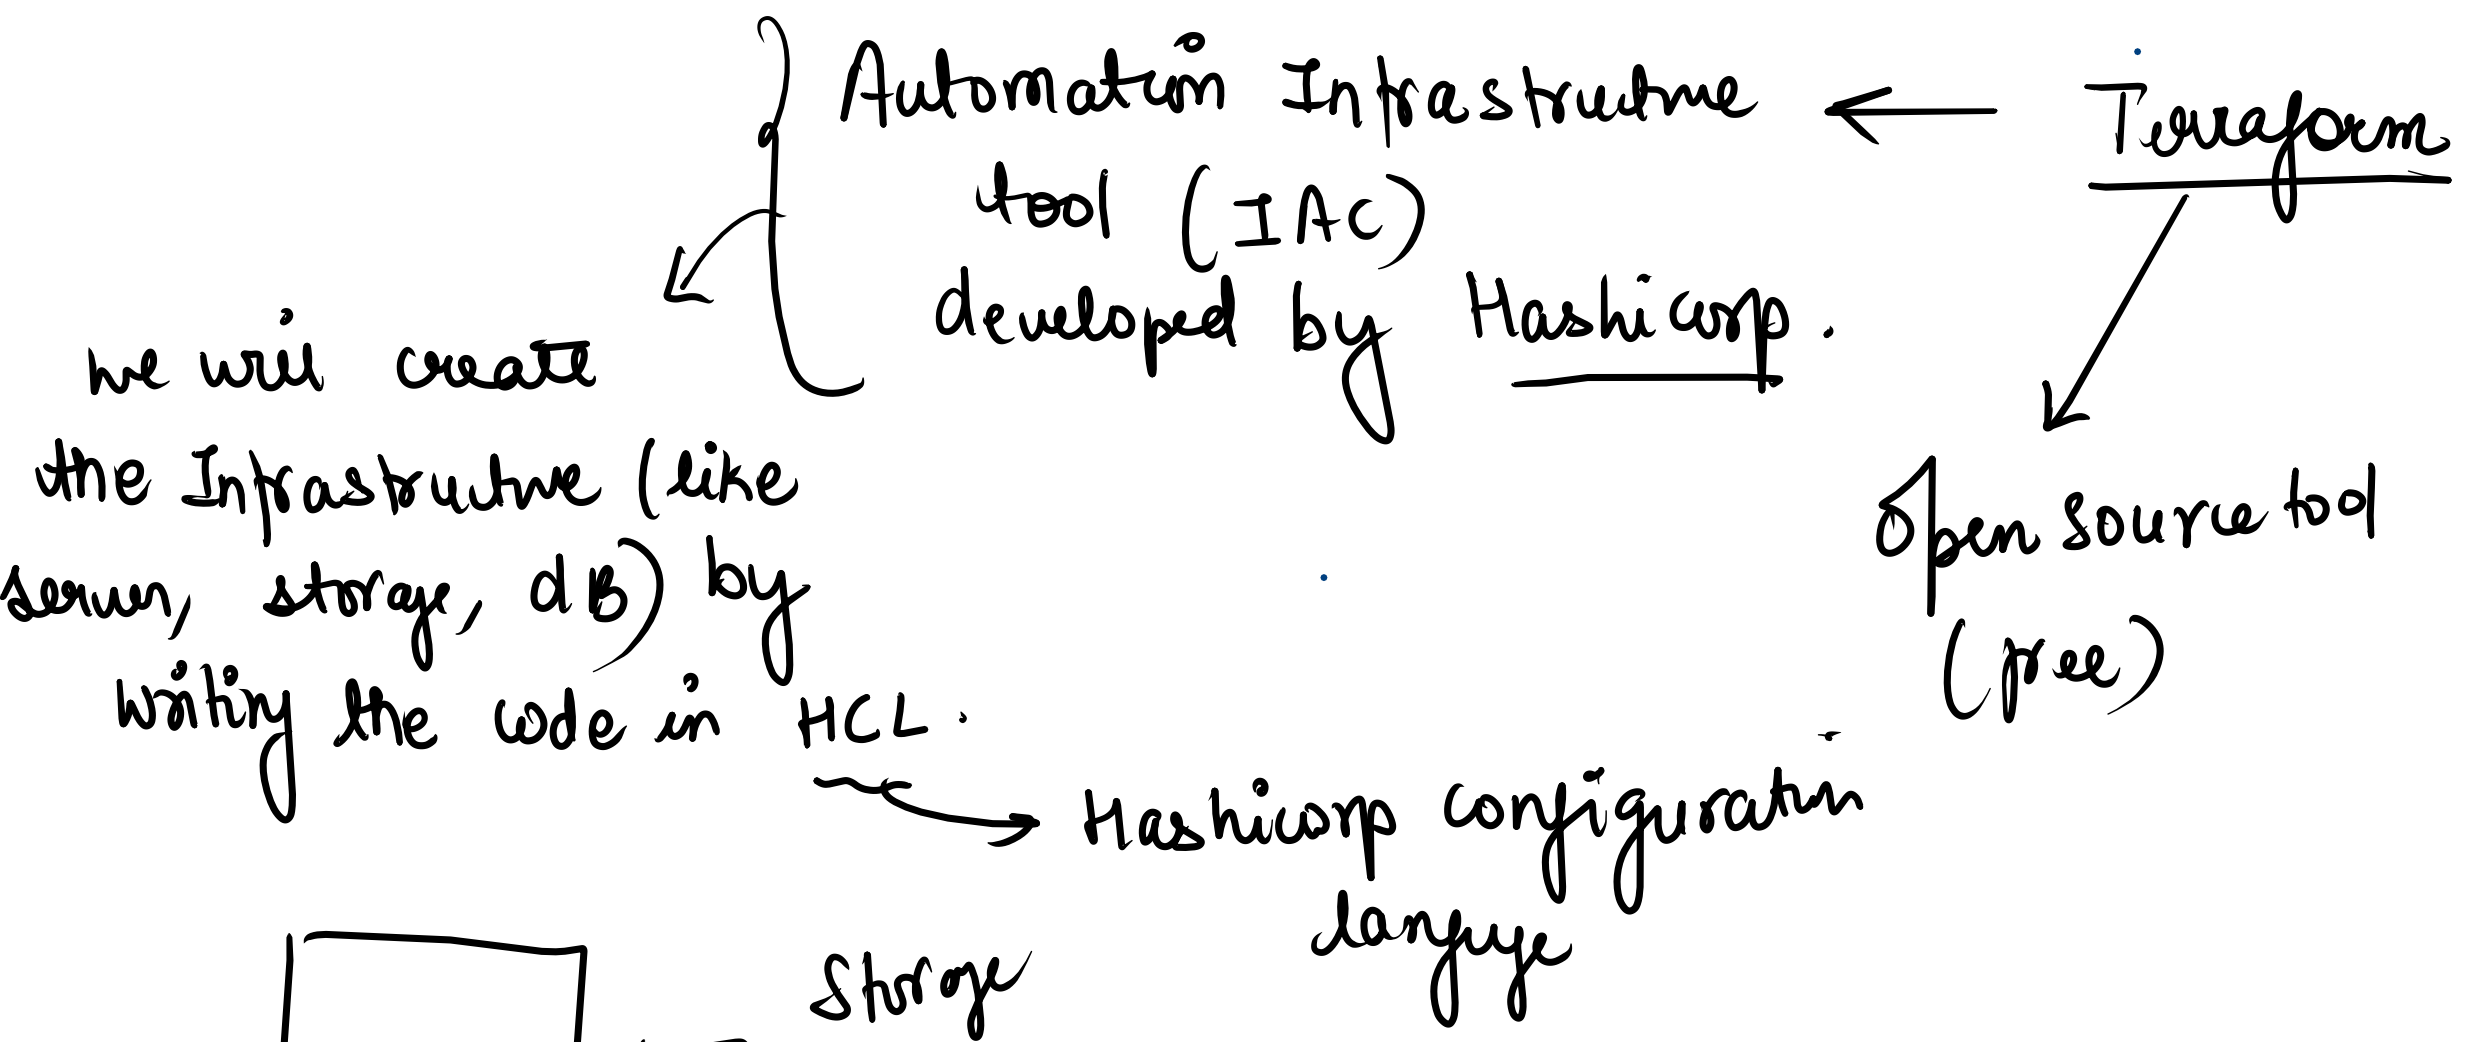 Terraform
Automation Infrastructure
tool (IAC)
developed by Hashicorp.
Open source tool
(free)
we will create
the Infrastructure (like
server, storage, dB) by
writing the code in HCL.
Hashicorp configuration
language
Storage